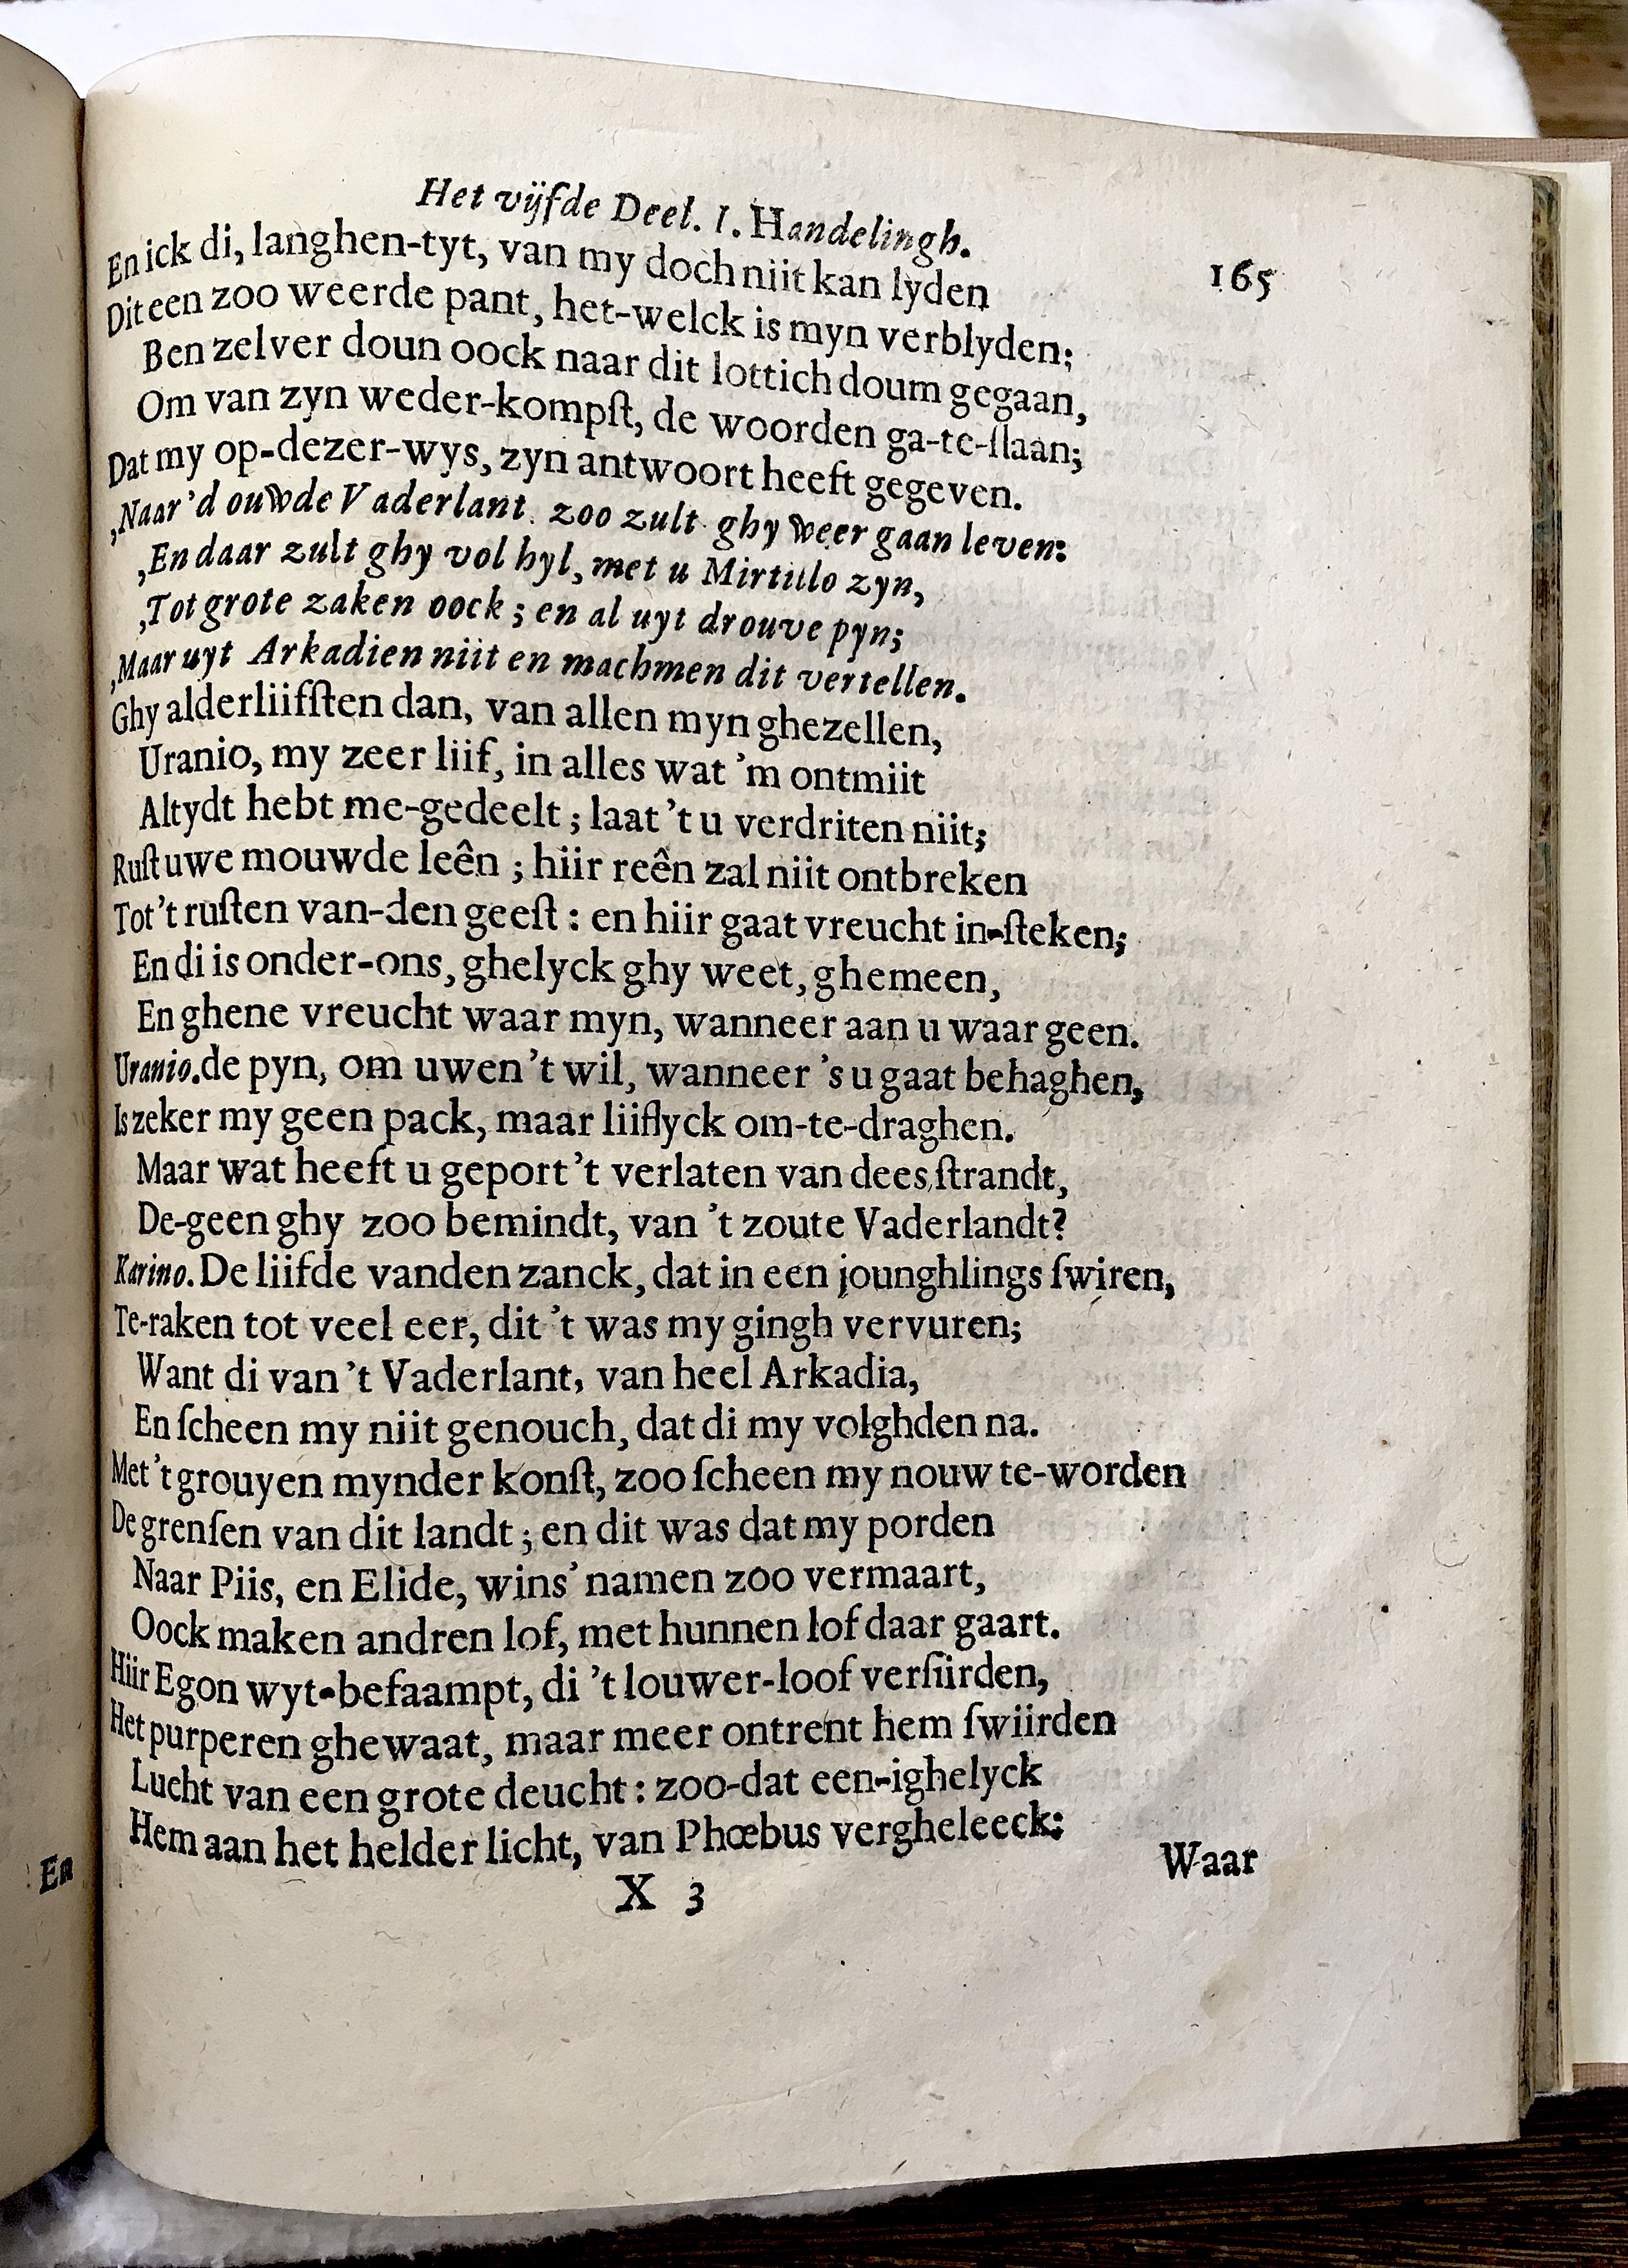 Het vijfde Deel. I. Handelingh.
165
En ick di, langhen-tyt, van my doch niit kan lyden
Dit een zoo weerde pant, het-welck is myn verblyden;
Ben zelver doun oock naar dit lottich doum gegaan,
Om van zyn weder-kompſt, de woorden ga-te-ſlaan;
Dat my op-dezer-wys, zyn antwoort heeft gegeven.
,Naar'd ouwde Vaderlant. zoo zult ghy weer gaan leven:
,En daar zult ghy vol hyl, met u Mirtillo zyn,
,Tot grote zaken oock; en al uyt drouve pyn;
,Maar uyt Arkadien niit en machmen dit vertellen.
Ghy alderliifſten dan, van allen myn ghezellen,
Uranio, my zeer liif, in alles wat 'm ontmiit
Altydt hebt me-gedeelt; laat 't u verdriten niit;
Ruſt uwe mouwde leên; hiir reên zal niit ontbreken
Tot 't ruſten van-den geeſt: en hiir gaat vreucht in-ſteken;
En di is onder-ons, ghelyck ghy weet, ghemeen,
En ghene vreucht waar myn, wanneer aan u waar geen.
Uranio. de pyn, om uwen 't wil, wanneer 's u gaat behaghen,
Is zeker my geen pack, maar liiflyck om-te-draghen.
Maar wat heeft u geport 't verlaten van dees ſtrandt,
De-geen ghy zoo bemindt, van 't zoute Vaderlandt?
Karino. De liifde vanden zanck, dat in een jounghlings ſwiren,
Te-raken tot veel eer, dit 't was my gingh vervuren;
Want di van 't Vaderlant, van heel Arkadia,
En ſcheen my niit genouch, dat di my volghden na.
Met 't grouyen mynder konſt, zoo ſcheen my nouw te-worden
De grenſen van dit landt; en dit was dat my porden
Naar Piis, en Elide, wins' namen zoo vermaart,
Oock maken andren lof, met hunnen lof daar gaart.
Hiir Egon wyt-befaampt, di 't louwer-loof verſiirden,
Het purperen ghewaat, maar meer ontrent hem ſwiirden
Lucht van een grote deucht: zoo-dat een-ighelyck
Hem aan het helder licht, van Phœbus vergheleeck:
X 3
Waar
En